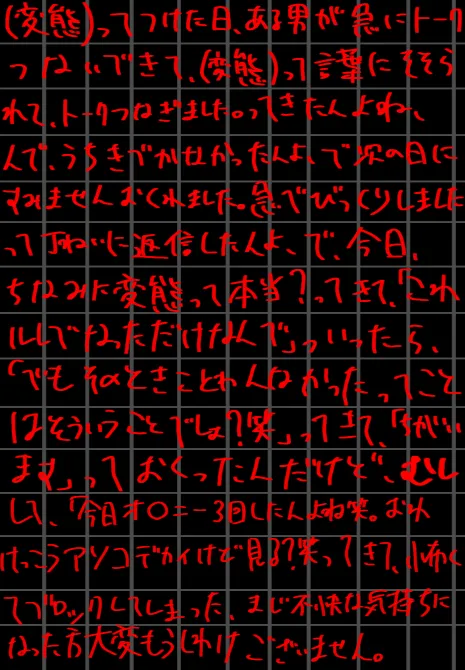 (変態)ってつけた日、ある男が急にトーク
つないできて、(変態)って言葉にそそら
れて、トークつなぎました。ってきたんよね、
んで、うちきづかなかったんよ、で次の日に
すみませんおくれました。急でびっくりしました
って丁ねいに返信したんよ、で、今日、
ちなみに変態って本当?ってきて、「これ
ルルでなっただけなんで」っいったら、
「でもそのときことわんなかったってこと
はそういうことでしょ?笑」ってきて、「ちがい
ます」っておくったんだけど、むし
して、「今日オ〇ニー3回したんよね笑。おれ
けっこうアソコデカイけど見る?笑ってきて、こわく
てブロックしてしまった、まじ不快な気持ちに
なった方大変もうしわけございません。